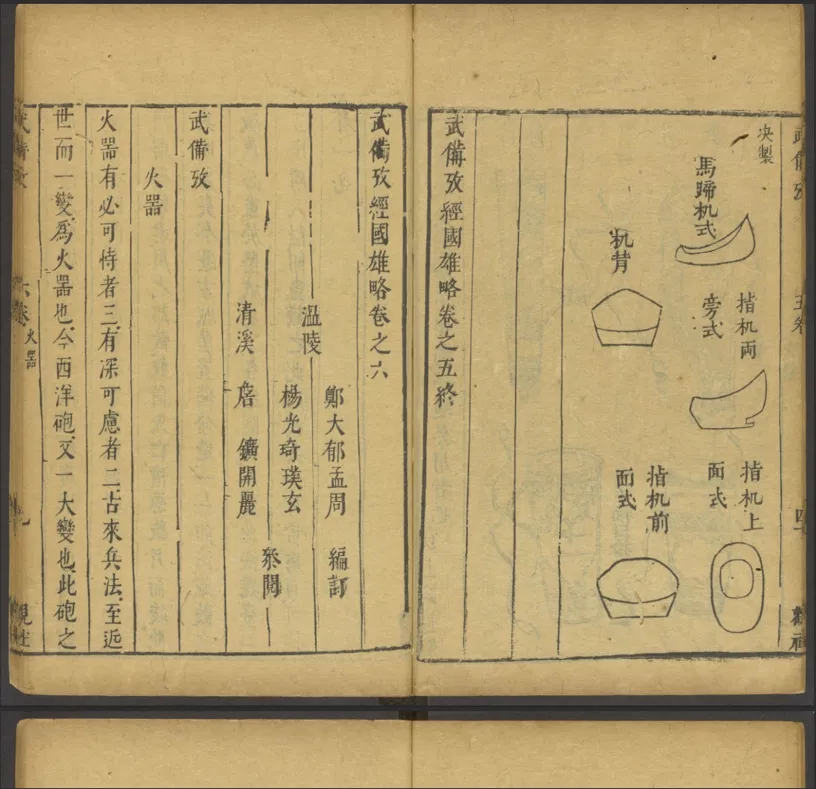 武備攷
五卷
四十
觀社
决製
馬蹄机式
机背
揹机両
旁式
揹机上
面式
揹机前
面式
武備攷經國雄略卷之五終
武備攷經國雄略卷之六
溫陵
鄭大郁孟周
編訂
楊光奇璞玄
清溪
鑛開麗
叅閱
武備攷
火器
火器有必可恃者三有深可慮者二古來兵法至近
世而一變爲火器也今西洋砲又一大變也此砲之
武備攷
六卷
火器